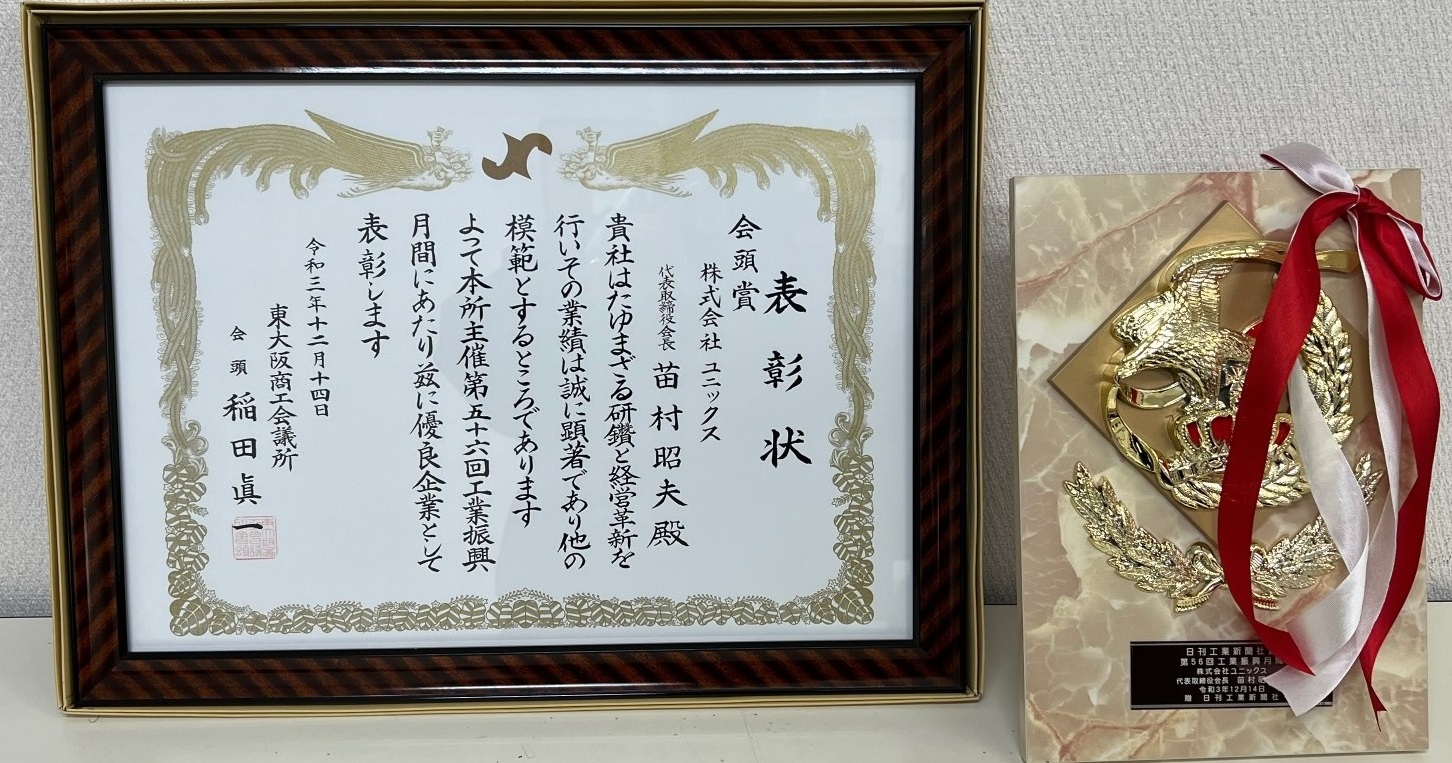 表彰状
会頭賞
株式会社 ユニックス
代表取締役会長 苗村昭夫殿
貴社はたゆまざる研鑽と経営革新を
行いその業績は誠に顕著であり他の
模範とするところであります
よって本所主催第五十六回工業振興
月間にあたり茲に優良企業として
表彰します
令和三年十二月十四日
東大阪商工会議所
会頭 稲田眞一
日刊工業新聞社
第56回工業振興月間
株式会社ユニックス
代表取締役会長 苗村
令和3年12月14日
贈 日刊工業新聞社